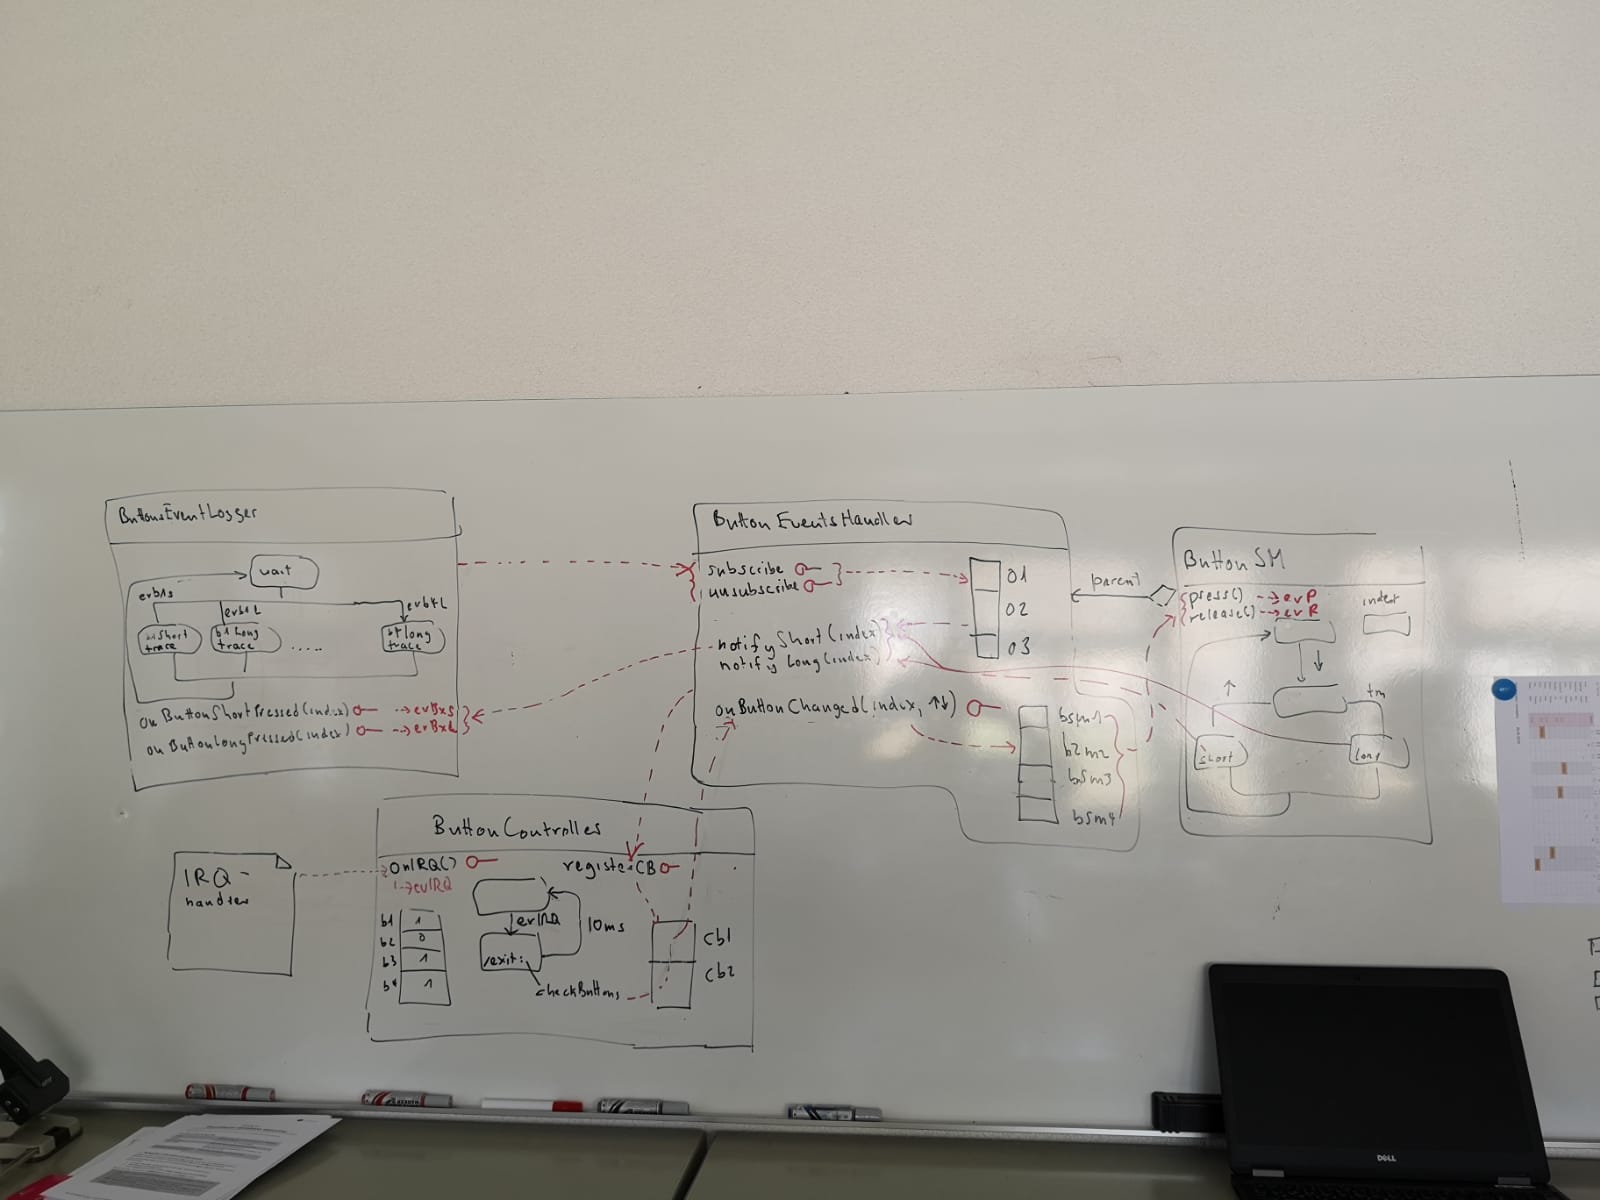 ButtonsEventLogger
wait
evb1s
evb1L
evb4L
b1 Short
trace
b1 Long
trace
.....
b4 long
trace
onButtonShortPressed(index) → evBxs
onButtonLongPressed(index) → evBxL
Button EventsHandler
subscribe
unsubscribe
notifyShort(index)
notifyLong(index)
onButtonChanged(index, ↑↓)
01
02
03
bsm1
b2m2
bsm3
bsm4
parent
ButtonSM
press() → evP
release() → evR
index
↓
↑
tm
short
long
ButtonController
onIRQ()
→evIRQ
registerCB
b1 1
b2 0
b3 1
b4 1
evIRQ
10ms
/exit:
checkButtons
cb1
cb2
IRQ-
handler
DELL